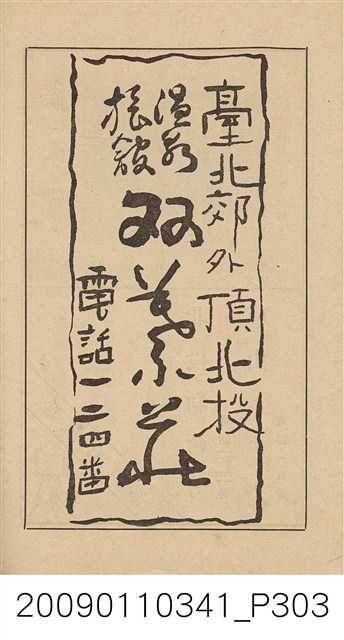 臺北郊外頂北投
温泉
旅館
双葉荘
電話一二四番
20090110341_P303